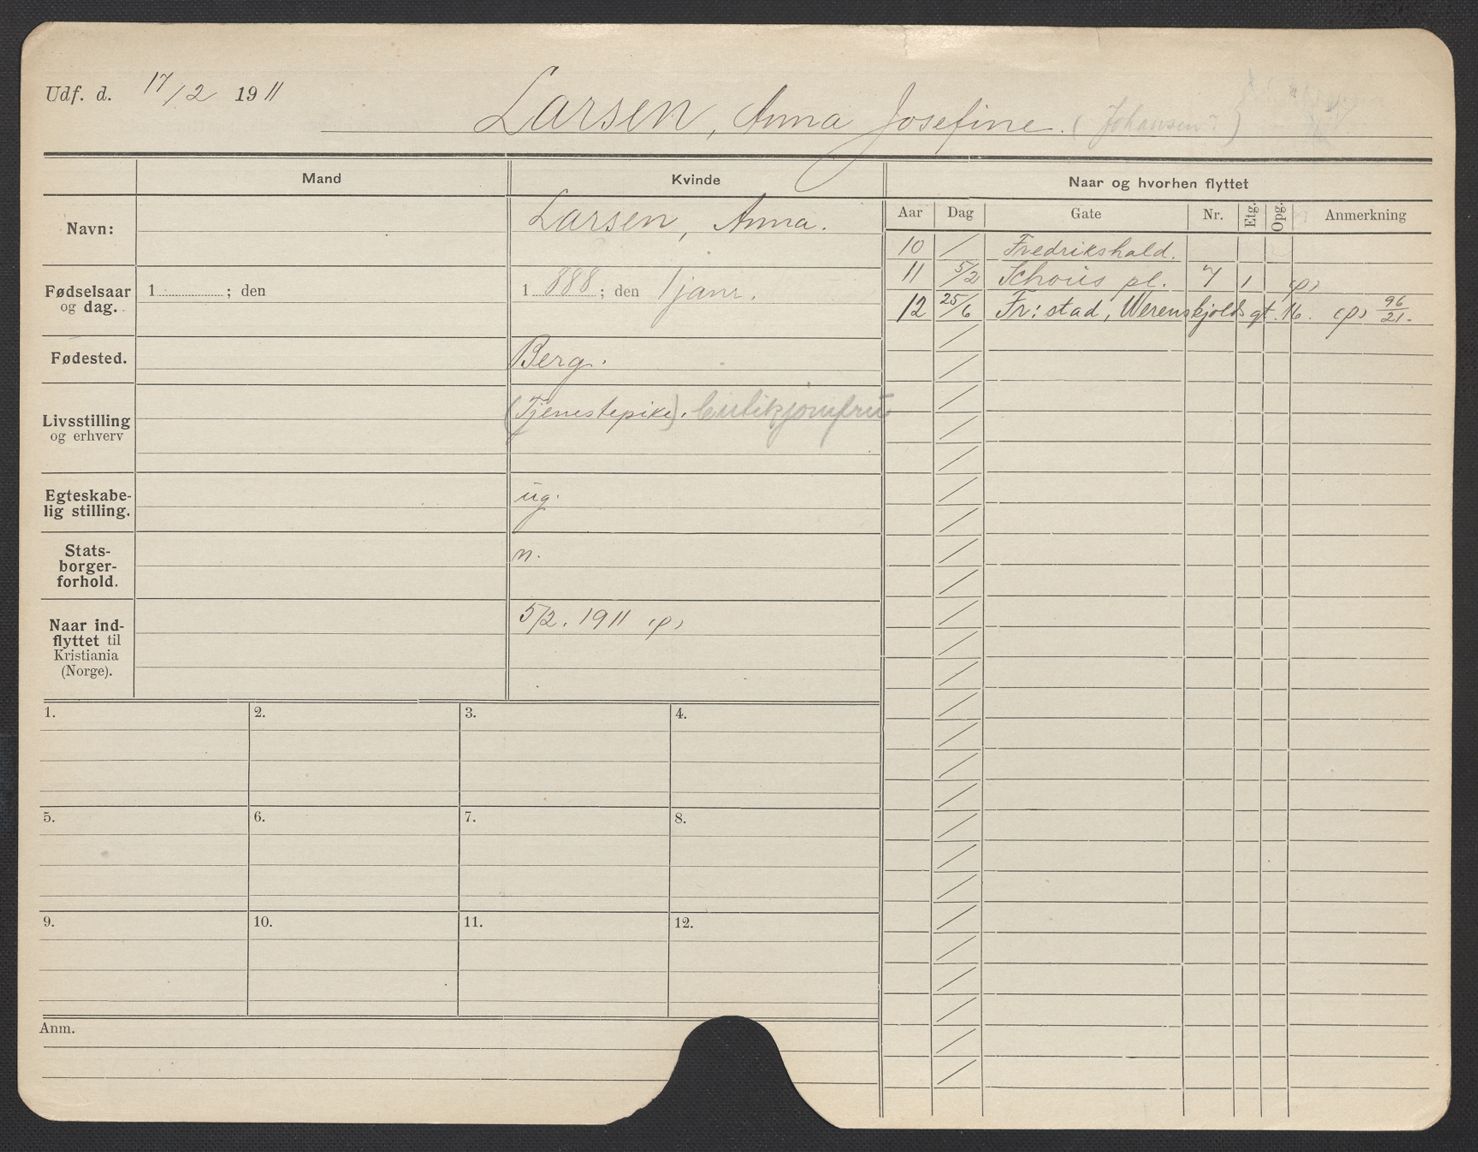 Udf. d. 17/2 1911
Larsen, Anna Josefine. (Johansen?)
Mand
Kvinde
Naar og hvorhen flyttet
Navn:
Larsen, Anna.
Aar Dag Gate Nr. Etg. Opg. Anmerkning
10 / Fredrikshald.
11 5/2 Schous pl. 7 1 (p)
12 25/6 Fr:stad, Werenskjolds gt. 16. (p) 96/21.
Fødselsaar
og dag.
1 ; den
1 888 ; den 1 janr.
Fødested.
Berg.
Livsstilling
og erhverv
(Tjenestepike).
Egteskabe-
lig stilling.
ug.
Stats-
borger-
forhold.
n.
Naar ind-
flyttet til
Kristiania
(Norge).
5/2. 1911 (p)
1. 2. 3. 4.
5. 6. 7. 8.
9. 10. 11. 12.
Anm.